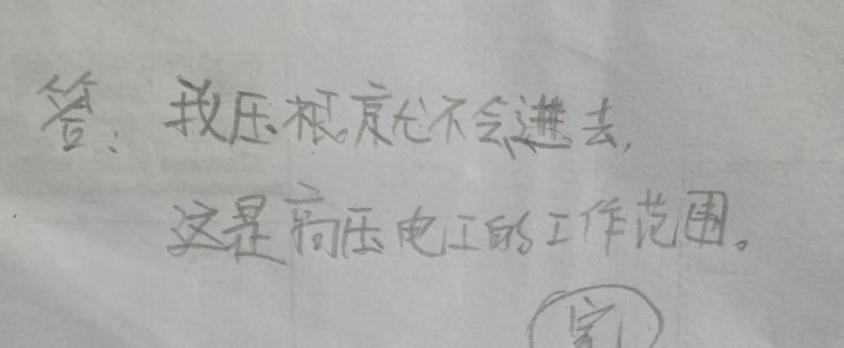 答:我压根就不会进去,
这是高压电工的工作范围。